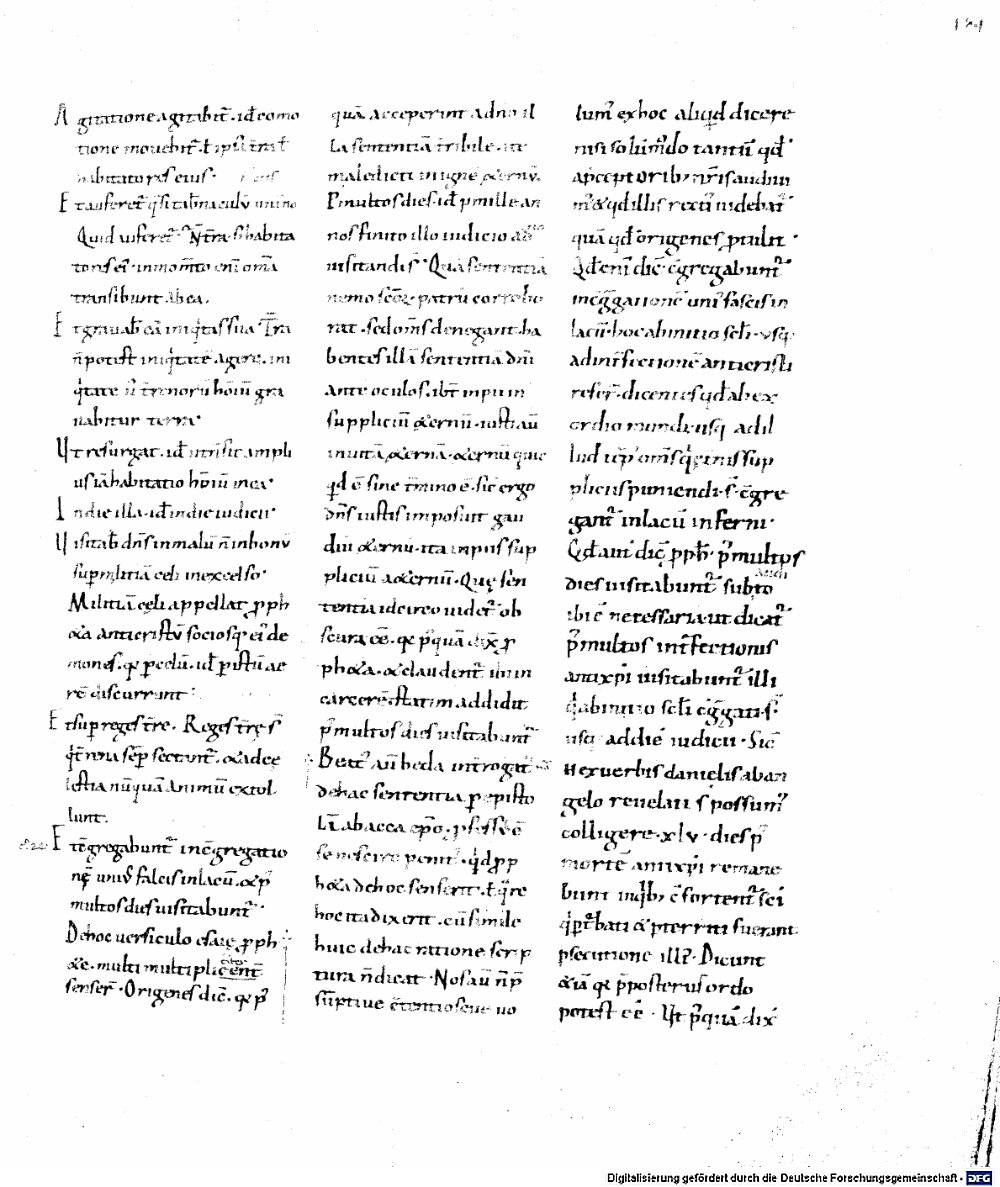 Agitatione agitabit̄. id̄ como
tione mouebit̄. ł ipsi
habitatores eius.
Et auferet̄ q̄si tab̄naculū unius no
Quid auferet̄. Nr̄a. s; habita
tores ei. in mom̄to eni om̄a
transibunt ab ea.
Et grauab̄ eā iniq̄tas sua. Tr̄a
n̄ potest iniq̄tatē agere. ini
q̄tate ū̄ terrenorū hōiū gra
uabitur terra.
Ut resurgat. id̄ ut n̄ sit ampli
us iā habitatio hōiū in ea.
In die illa. id̄ in die iudicii.
Uisitab̄ dn̄s in malū n̄ in bonū
sup militiā celi in excelso.
Militiā celi appellat ꝓph
&a anticristū socios q; ei de
mones. q; p celū. id̄ p istū ae
rē discurrunt.
Et sup reges tr̄e. Reges tr̄ę s̄
q̄ terrena sēp sectant̄. & ad cę
lestia nūquā animū extol
lunt.
Et c̄gregabunt̄ in c̄gregatio
nē unius fascis in lacū. & p̄
multos dies uisitabunt̄.
De hoc uersiculo esaię ꝓph
&ę. multi multipliciter
senser̄. Origenes dic̄. q; p̄
quā acceperint ad no il
la sententiā tribile. ite
maledicti in ignē &ernū.
P̄ multos dies. id̄ p̄ mille an
nos finito illo iudicio
uisitandi s̄. Quā sententiā
nemo sc̄oꝝ patrū corrobo
rat. sed om̄s denegant. ha
bentes illā sententiā dn̄i
ante oculos. ibt̄ impii in
suppliciū &ernū. iusti aū
in uitā &ernā. &ernū quie
qd̄ ē sine t̄mino ē. sic ergo
dn̄s iustis imposuit gau
diū &ernū. ita impiis sup
pliciū &ernū. Quę sen
tentia idcirco uidet̄ ob
scura ēē. q; p̄quā dix̄ ꝓ
ph&a. & claudent̄ ibi in
carcerē. statim addidit
p̄ multos dies uisitabunt̄
Beat̄ aū beda int̄rogat̄
de hac sententia p episto
lā ab acca ep̄o. ꝓfess; ē
se nescire penit̄. qd̄ ꝓp
h&a de hoc senserit. ł q̄re
hoc ita dixerit. cū simile
huic de hac ratione scrip
tura n̄ dicat. Nos aū n̄ p̄
sūptiue c̄tentiose uo
lum̄ ex hoc aliq̄d dicere
nisi solūm̄do tantū qd̄
a p̄ceptorib; nr̄is audiui
m̄. & qd̄ illis rectū uidebat̄
quā qd̄ origenes ꝓtulit.
Qd̄ eni dic̄. c̄gregabunt̄
in c̄gregationē uni; fascis in
lacū. hoc ab initio sc̄li. usq;
ad int̄fectionē anticristi
refert̄. dicentes qd̄ ab ex
ordio mundi. usq; ad il
lud tēp̄. om̄s q̄ &nis sup
pliciis puniendi s̄. c̄gre
gant̄ in lacū inferni.
Qd̄ aut̄ dic̄ ꝓph. p̄ multos
dies uisitabunt̄ subto
ibi ē necessaria. ut dicat̄
p̄ multos int̄fectionis
antixp̄i uisitabunt̄ illi
q̄ ab initio sc̄li c̄ggati s̄.
usq; ad diē iudicii. Sic̄
n̄ ex uerbis danielis a ban
gelo reuelati s̄ possum̄
colligere. xlv. dies p̄
mortē antixp̄i remane
bunt in qb; c̄fortent̄ sc̄i
q̄ p̄t̄bati & pterriti fuerant
psecutione illi;. Dicunt
&iā q; p̄posterus ordo
potest ēē. Ut p̄quā dix̄